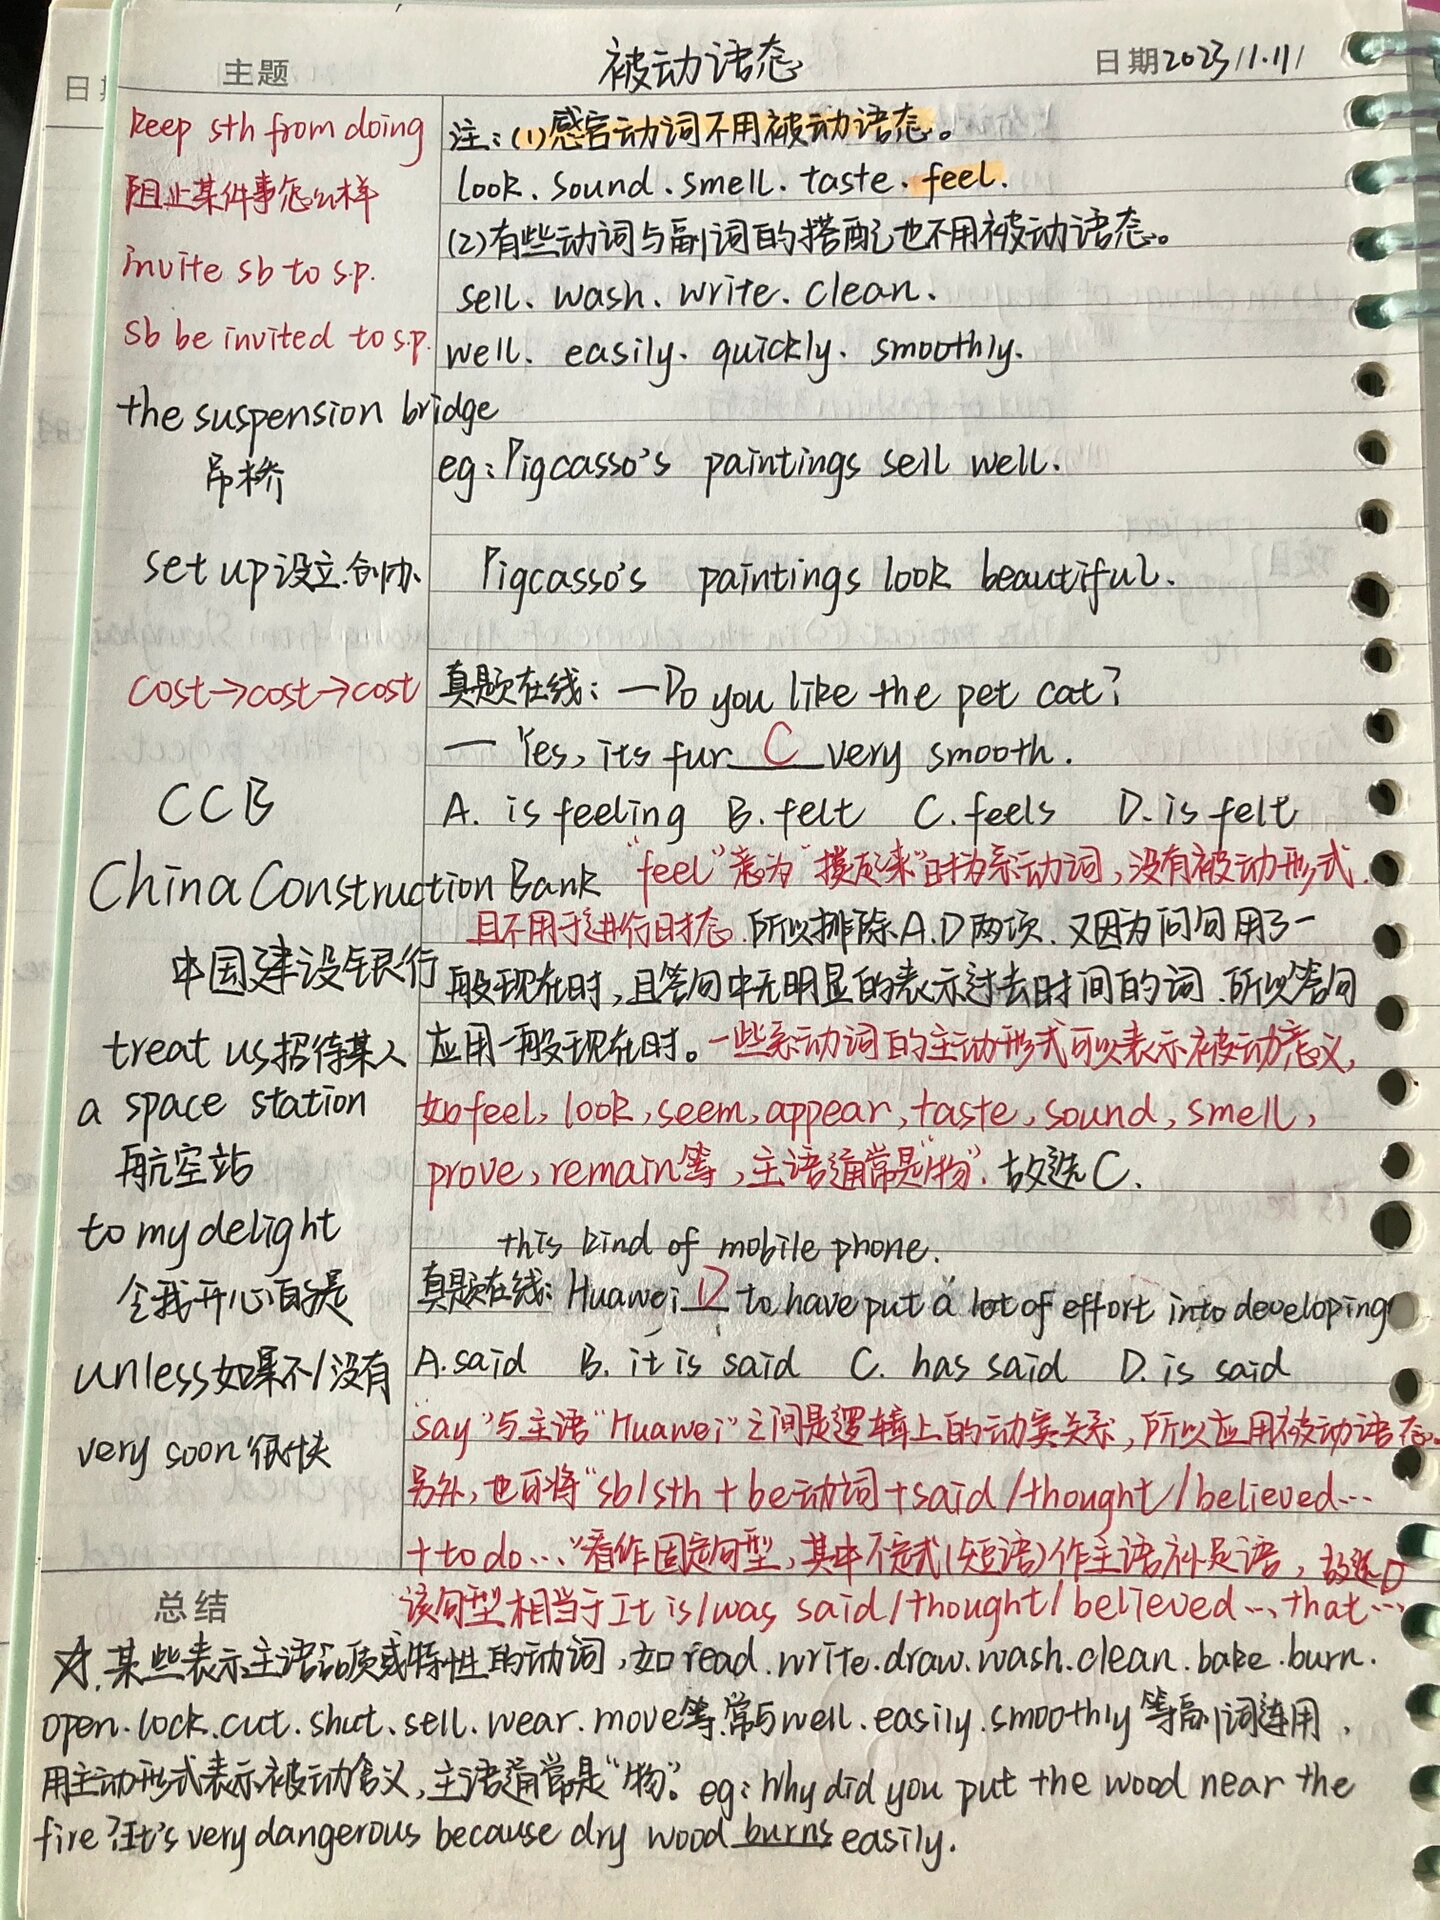 主题
被动语态
日期2023/11.11/
keep sth from doing
阻止某件事怎么样
invite sb to s.p.
Sb be invited to s.p.
the suspension bridge
吊桥
set up设立.创办
cost→cost→cost
CCB
China Construction Bank
中国建设银行
treat us招待某人
a space station
航空站
to my delight
令我开心的是
unless如果不/没有
very soon很快
注:(1)感官动词不用被动语态。
look.sound.smell.taste.feel.
(2)有些动词与副词的搭配也不用被动语态。
sell.wash.write.clean.
well.easily.quickly.smoothly.
eg:Pigcasso's paintings sell well.
Pigcasso's paintings look beautiful.
真题在线:—Do you like the pet cat?
— Yes, its fur C very smooth.
A. is feeling B. felt C. feels D. is felt
"feel"意为"摸起来"时为系动词,没有被动形式.
且不用于进行时态.所以排除A.D两项.又因为问句用了一
般现在时,且答句中无明显的表示过去时间的词.所以答句
应用一般现在时。一些系动词的主动形式可以表示被动意义,
如feel, look, seem, appear, taste, sound, smell,
prove, remain等,主语通常是"物".故选C.
this kind of mobile phone.
真题在线:Huawei D to have put a lot of effort into developing
A. said B. it is said C. has said D. is said
"say"与主语"Huawei"之间是逻辑上的动宾关系,所以应用被动语态。
另外,也可将"sb/sth + be动词+said/thought/believed…
+to do…"看作固定句型,其中不定式(短语)作主语补足语,故选D
该句型相当于It is/was said/thought/believed…that…
总结
☆.某些表示主语品质或特性的动词,如read.write.draw.wash.clean.bake.burn.
open.lock.cut.shut.sell.wear.move等.常与well.easily.smoothly等副词连用.
用主动形式表示被动含义,主语通常是"物"。eg:Why did you put the wood near the
fire?It's very dangerous because dry wood burns easily.